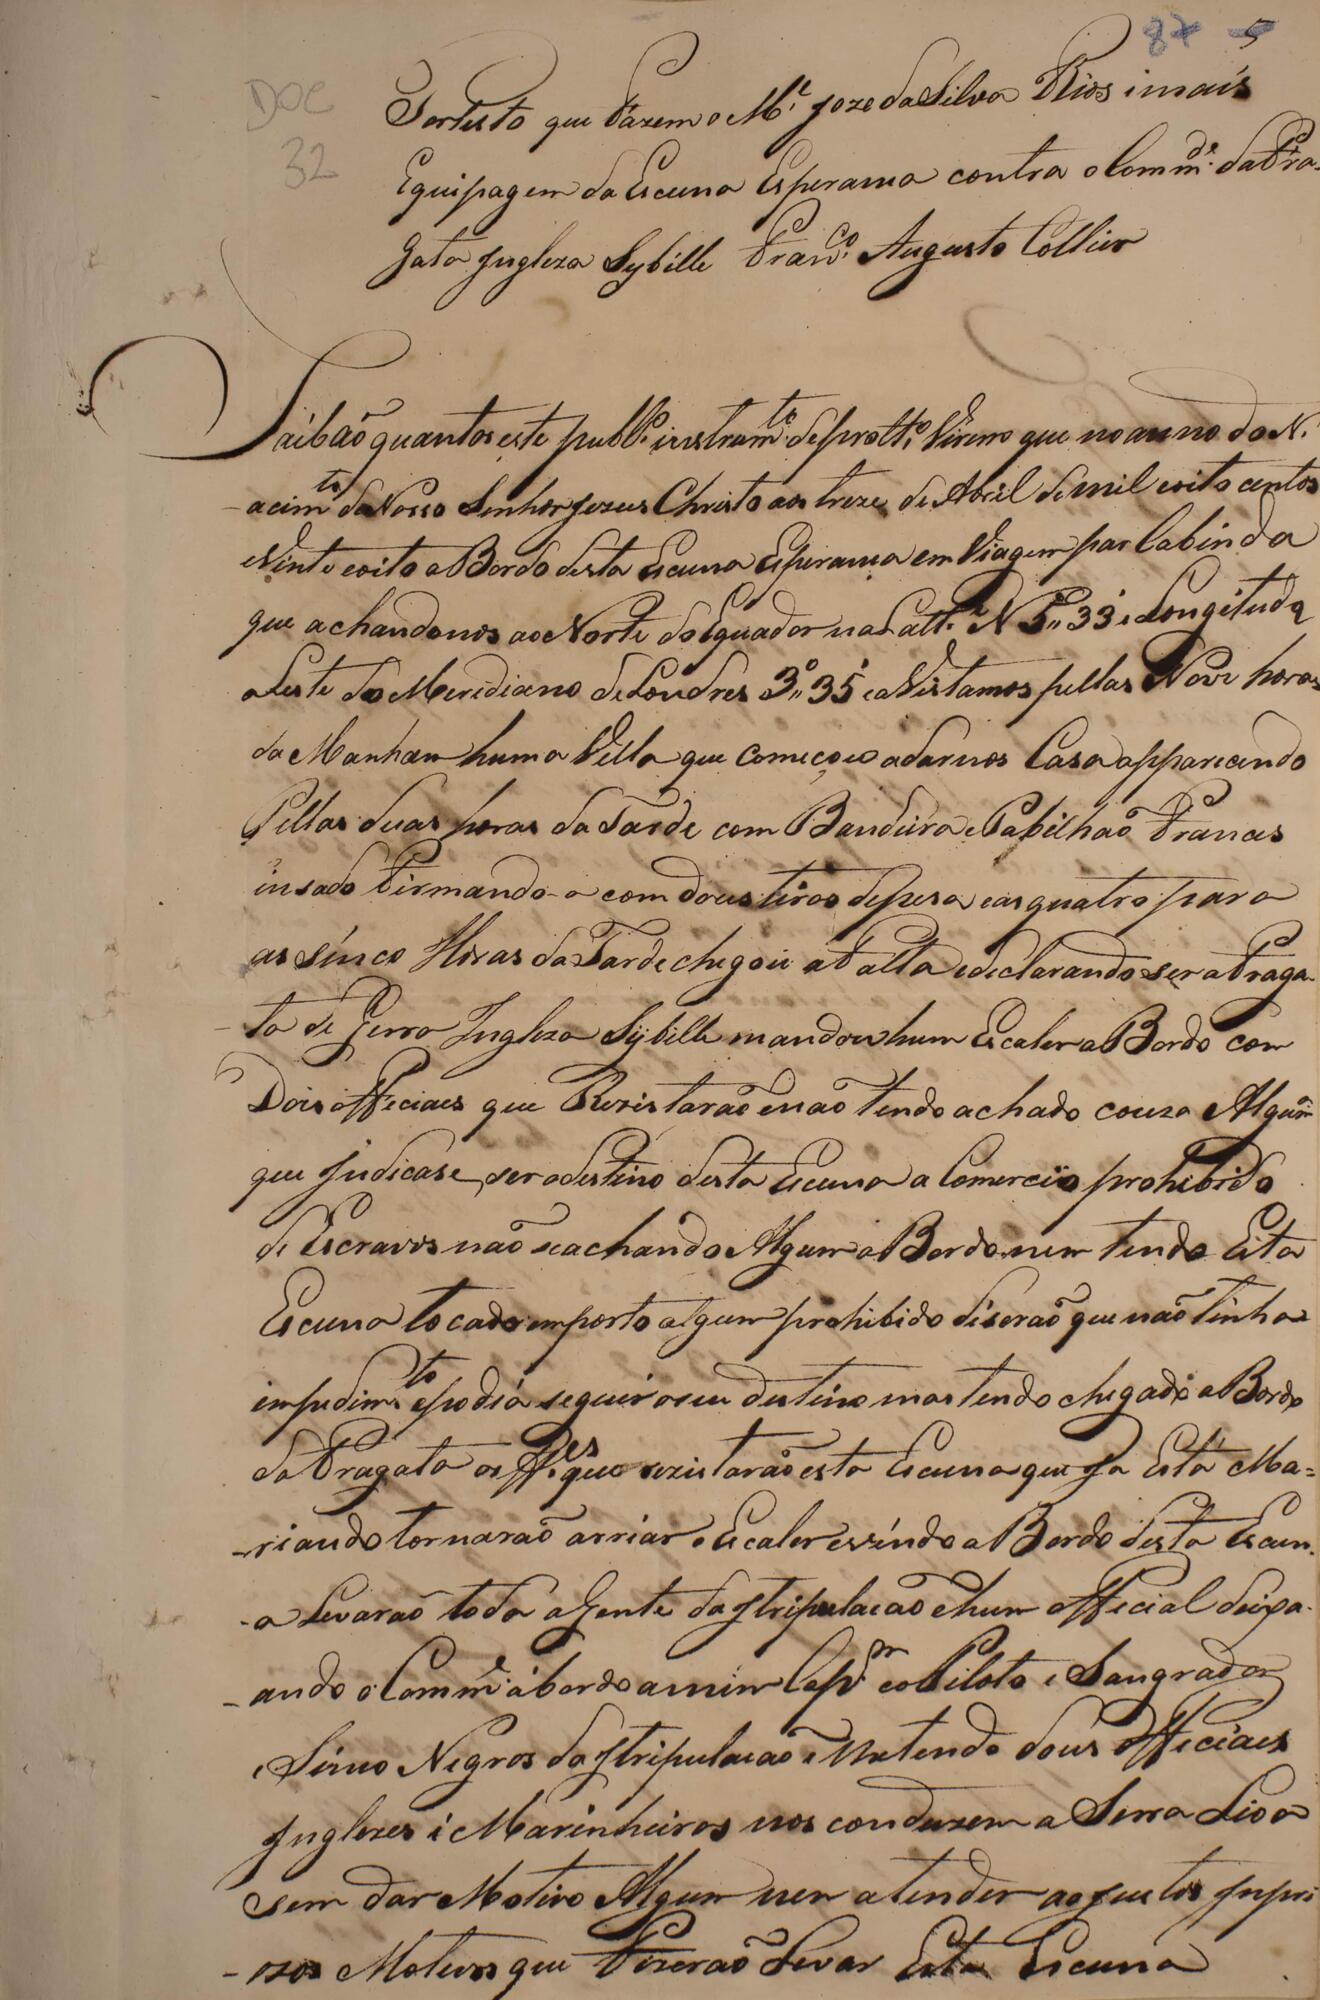 87 5
DOC
32
Portesto que Fazem o M.e Joze da Silva Rios i mais
Equipagem da Escuna Esperansa contra o Comm.de da Fra-
gata Jngleza Sybille Fran.co Augusto Collier
Saibão quantos este publ.o instrum.to de prott.o Virem que no anno do N.
-acim.to de Nosso Senhor Jezus Christo aos treze de Abril de mil oito centos
e Vinte e oito a Bordo desta Escuna Esperansa em Viagem par Cabinda
que achandonos ao Norte do Equador na Latt.e N 5°,, 33' e Longitude
a Leste do Meridiano de Londres 3°,, 35' e a Vistamos pellas Nove horas
da Manhan huma Vella que começou a darnos Casa apparecendo
Pellas duas horas da Tarde com Bandeira e Pabilhaõ Frances
insado Firmando-a com dous tiros de pesa e as quatro para
as sinco Horas da Tarde chegou a Falla e declarando ser a Fraga-
-ta de Gerra Jngleza Sybille mandou hum Escaler a Bordo com
Dois officiaes que Rezistarão e não tendo achado couza Algũa
que Judicase ser o destino desta Escuna a Comercio prohibido
de Escravos não se achando Algum a Bordo nem tendo Esta
Escuna tocado em porto algum prohibido diserão que não tinha
impedim.to e podia seguir o seu destino mas tendo chegado a Bordo
da Fragata os Off.es que rezistarão esta Escuna que Ja Esta Ma=
-riando tornarão arriar o Escaler e vindo a Bordo desta Escun-
-a Levarão toda a Gente da Jtripulacão e hum official deixa-
-ando o Comm.e á bordo a mim Cap.m e o Piloto e Sangrador
e Sinco Negros da Jtripulacão e Metendo dous officiaes
Jnglezes i Marinheiros nos conduzem a Serra Lioa
sem dar Motivo Algum nem atender ao Justos Jnpri
-ozos Motivos que Fizerão Levar Esta Escuna